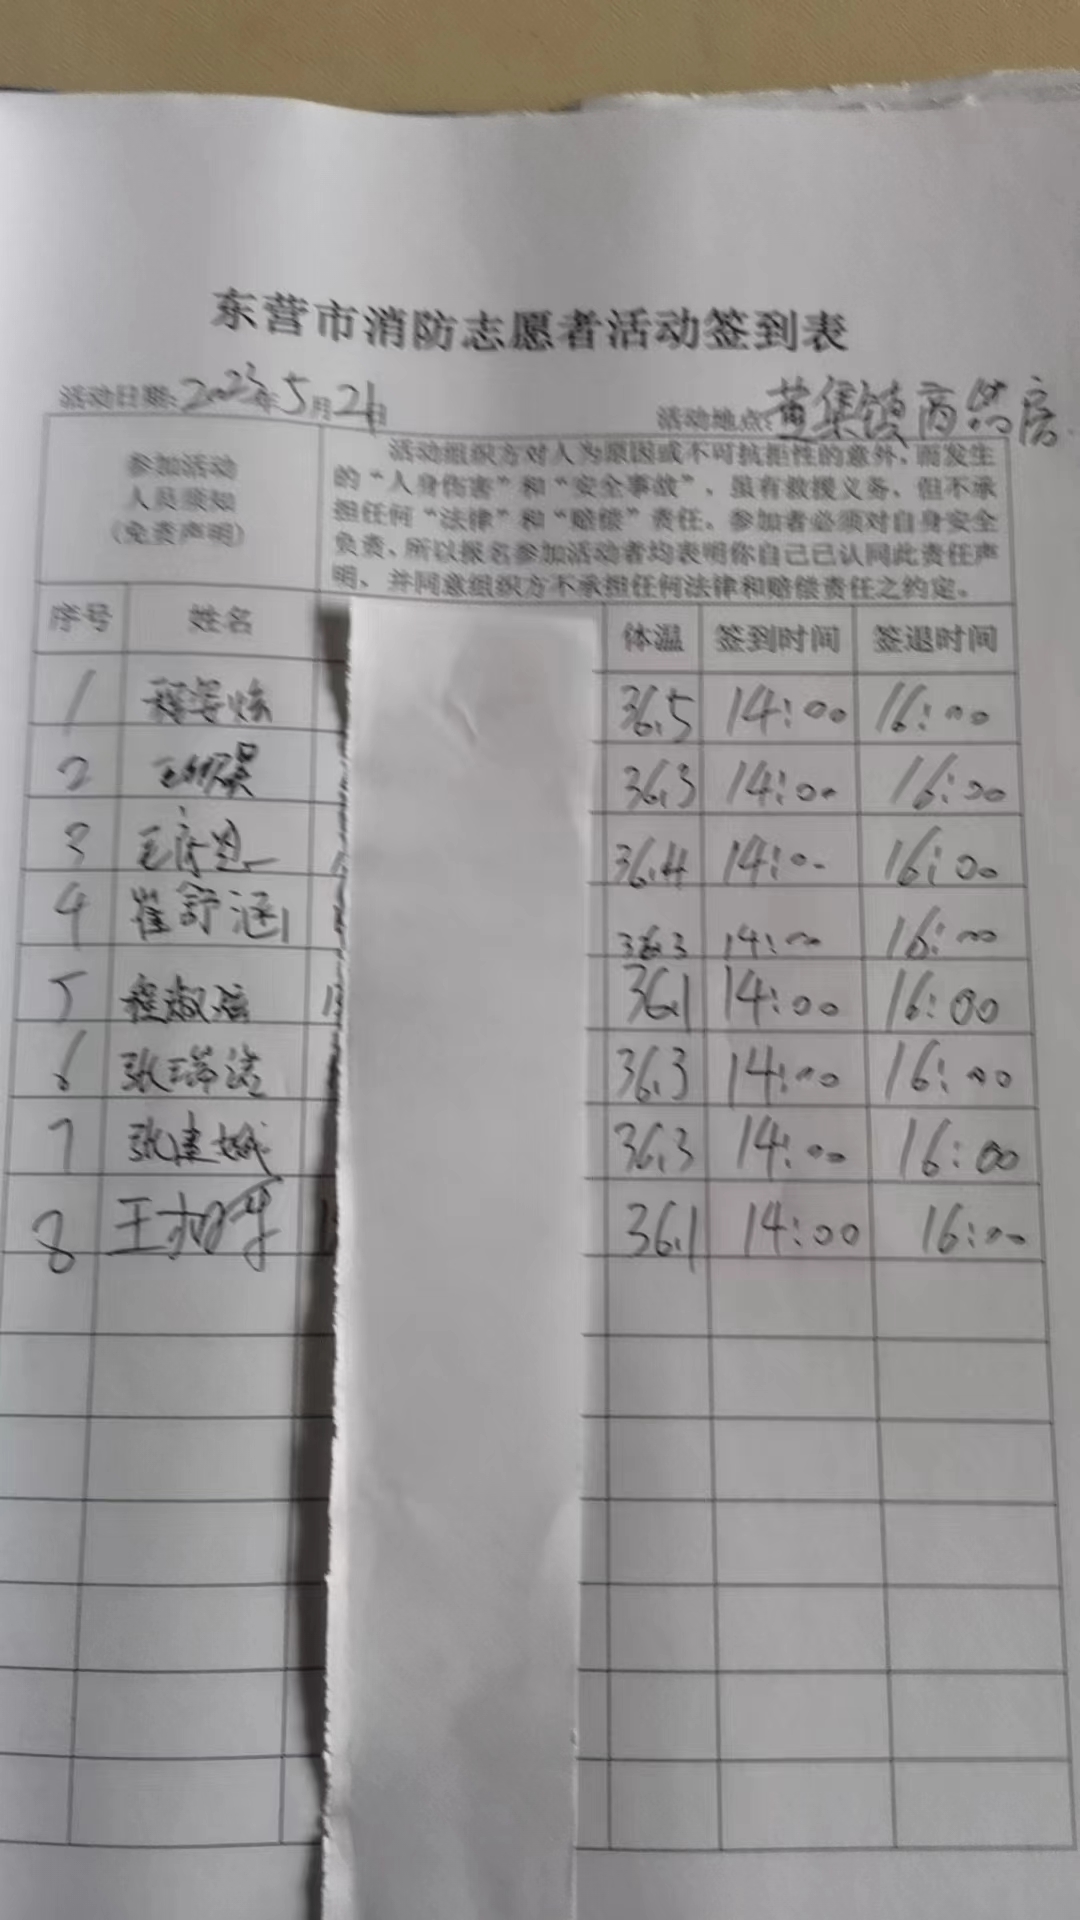 东营市消防志愿者活动签到表
活动日期:2023年5月21日 活动地点:黄集镇商贸房
参加活动
人员须知
(免责声明)
活动组织方对人为原因或不可抗拒性的意外,而发生
的“人身伤害”和“安全事故”,虽有救援义务,但不承
担任何“法律”和“赔偿”责任。参加者必须对自身安全
负责、所以报名参加活动者均表明你自己已认同此责任声
明、并同意组织方不承担任何法律和赔偿责任之约定。
序号 姓名 体温 签到时间 签退时间
1 程 36.5 14:00 16:00
2 王 36.3 14:00 16:00
3 王 36.4 14:00 16:00
4 崔舒涵 36.3 14:00 16:00
5 程 36.1 14:00 16:00
6 张瑞 36.3 14:00 16:00
7 张建娥 36.3 14:00 16:00
8 王 36.1 14:00 16:00